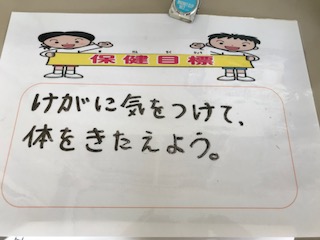 保健目標
けがに気をつけて、
体をきたえよう。